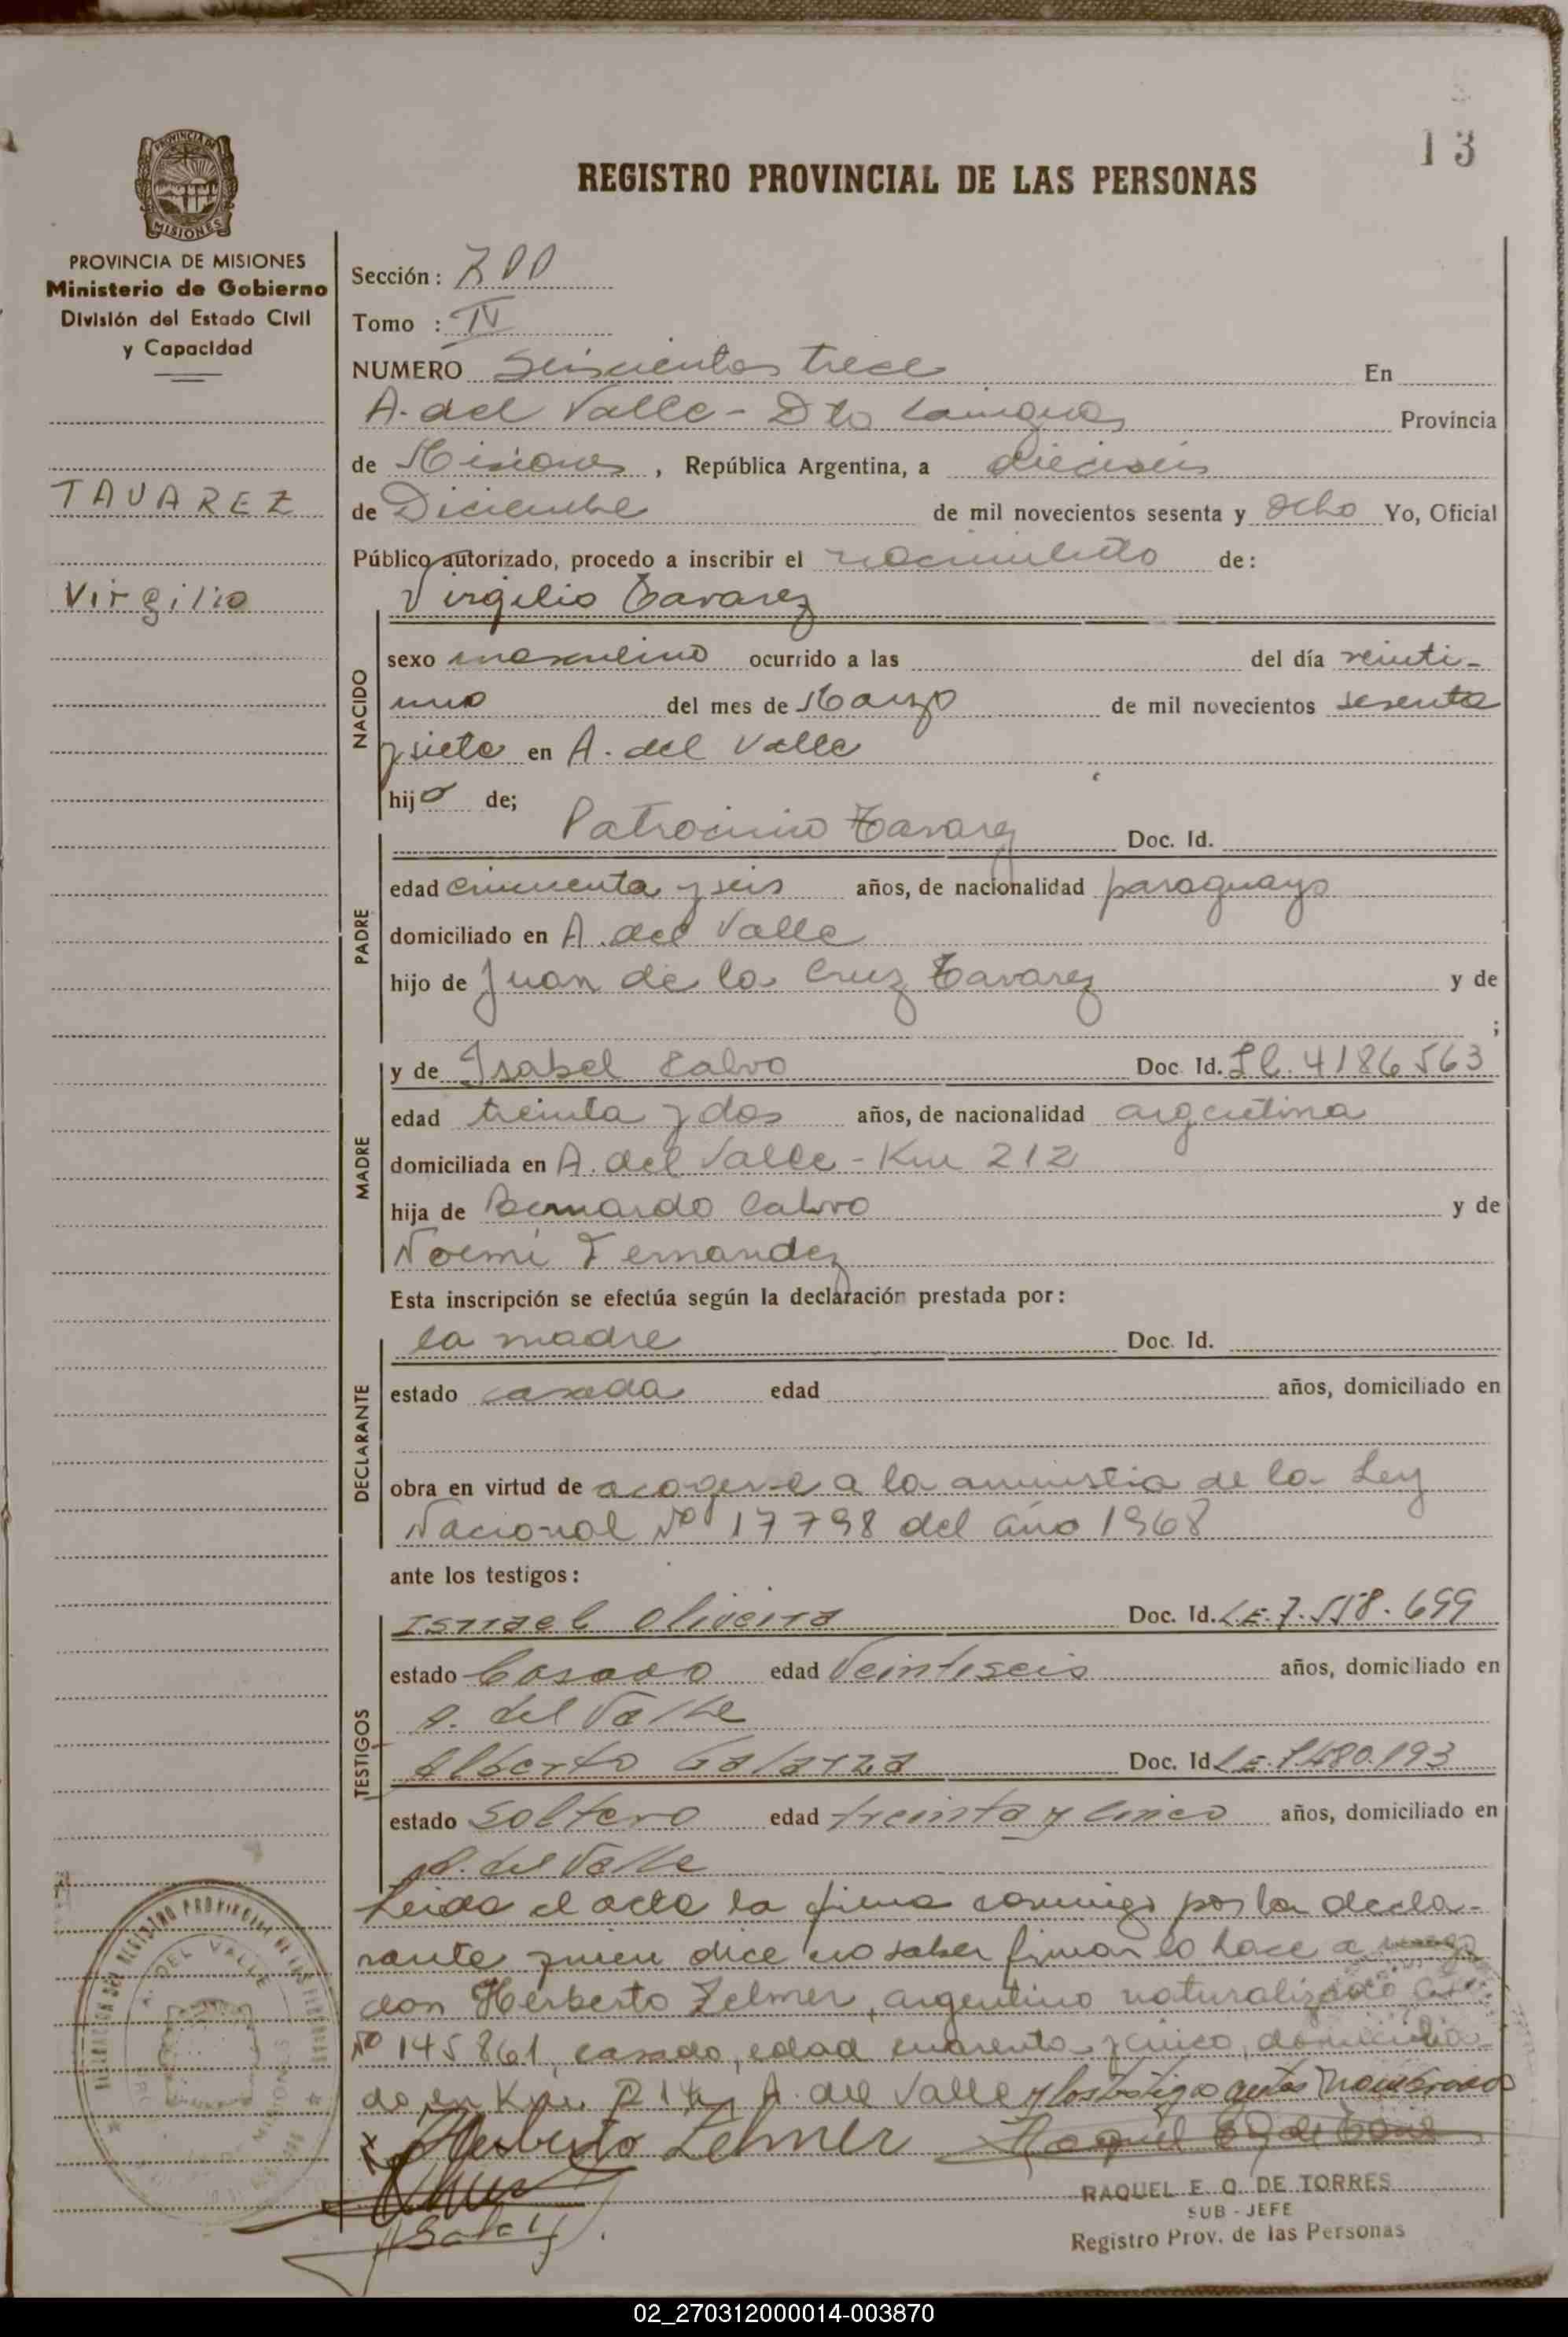 13
REGISTRO PROVINCIAL DE LAS PERSONAS
PROVINCIA DE MISIONES
MISIONES
PROVINCIA DE MISIONES
Ministerio de Gobierno
División del Estado Civil
y Capacidad
TAVAREZ
Virgilio
Sección:
Tomo : IV
NUMERO Seiscientos trece En
A. del Valle - Dto Cainguas Provincia
de Misiones, República Argentina, a dieciseis
de Diciembre de mil novecientos sesenta y ocho Yo, Oficial
Público autorizado, procedo a inscribir el nacimiento de:
Virgilio Tavarez
NACIDO
sexo masculino ocurrido a las del día veinti-
uno del mes de Marzo de mil novecientos sesenta
y siete en A. del Valle
hijo de;
PADRE
Patrocinio Tavarez Doc. Id.
edad cincuenta y seis años, de nacionalidad paraguayo
domiciliado en A. del Valle
hijo de Juan de la Cruz Tavarez y de
;
MADRE
y de Isabel Calvo Doc. Id. LC. 4186563
edad treinta y dos años, de nacionalidad argentina
domiciliada en A. del Valle - Km 212
hija de Bernardo Calvo y de
Noemi Fernandez
Esta inscripción se efectúa según la declaración prestada por:
DECLARANTE
la madre Doc. Id.
estado casada edad años, domiciliado en
obra en virtud de acogerse a la amnistia de la Ley
Nacional Nº 17798 del año 1968
ante los testigos:
TESTIGOS
Israel Oliveira Doc. Id. LE. 7.558.699
estado Casado edad Veintiseis años, domiciliado en
A. del Valle
Alberto Galarza Doc. Id LE. 7480.193
estado Soltero edad treinta y cinco años, domiciliado en
A. del Valle
Leida el acta la firma conmigo por la decla-
rante quien dice no saber firmar lo hace a ruego
don Herberto Zelmer, argentino naturalizado
Nº 145861, casado, edad cuarenta y cinco, domicilia-
do en Km 214 A. del Valle y los testigos antes nombrados
Herberto Zelmer
RAQUEL E. O. DE TORRES
SUB - JEFE
Registro Prov. de las Personas
A. DEL VALLE
02_270312000014-003870